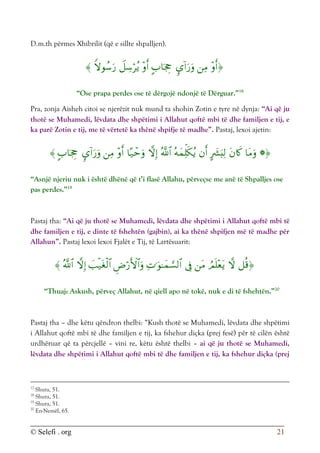 D.m.th përmes Xhibrilit (që e sillte shpalljen).
﴿أَوْ مِن وَرَآيِٕ حِجَابٍ أَوْ يُرْسِلَ رَسُولًا﴾
“Ose prapa perdes ose të dërgojë ndonjë të Dërguar.”¹⁸
Pra, zonja Aisheh citoi se njerëzit nuk mund ta shohin Zotin e tyre në dynja: “Ai që ju
thotë se Muhamedi, lëvdata dhe shpëtimi i Allahut qoftë mbi të dhe familjen e tij, e
ka parë Zotin e tij, me të vërtetë ka thënë shpifje të madhe”. Pastaj, lexoi ajetin:
﴿۞ وَمَا كَانَ لِبَشَرٍ أَن يُكَلِّمَهُ ٱللَّهُ إِلَّا وَحْيًا أَوْ مِن وَرَآيِٕ حِجَابٍ﴾
“Asnjë njeriu nuk i është dhënë që t’i flasë Allahu, përveçse me anë të Shpalljes ose
pas perdes.”¹⁹
Pastaj tha: “Ai që ju thotë se Muhamedi, lëvdata dhe shpëtimi i Allahut qoftë mbi të
dhe familjen e tij, e dinte të fshehtën (gajbin), ai ka thënë shpifjen më të madhe për
Allahun”. Pastaj lexoi lexoi Fjalët e Tij, të Lartësuarit:
﴿قُل لَّا يَعْلَمُ مَن فِى ٱلسَّمَٰوَٰتِ وَٱلْأَرْضِ ٱلْغَيْبَ إِلَّا ٱللَّهُ﴾
“Thuaj: Askush, përveç Allahut, në qiell apo në tokë, nuk e di të fshehtën.”²⁰
Pastaj tha – dhe këtu qëndron thelbi: “Kush thotë se Muhamedi, lëvdata dhe shpëtimi
i Allahut qoftë mbi të dhe familjen e tij, ka fshehur diçka (prej fesë) për të cilën është
urdhëruar që ta përcjellë – vini re, këtu është thelbi – ai që ju thotë se Muhamedi,
lëvdata dhe shpëtimi i Allahut qoftë mbi të dhe familjen e tij, ka fshehur diçka (prej
¹⁷ Shura, 51.
¹⁸ Shura, 51.
¹⁹ Shura, 51.
²⁰ En-Nemël, 65.
© Selefi . org 21